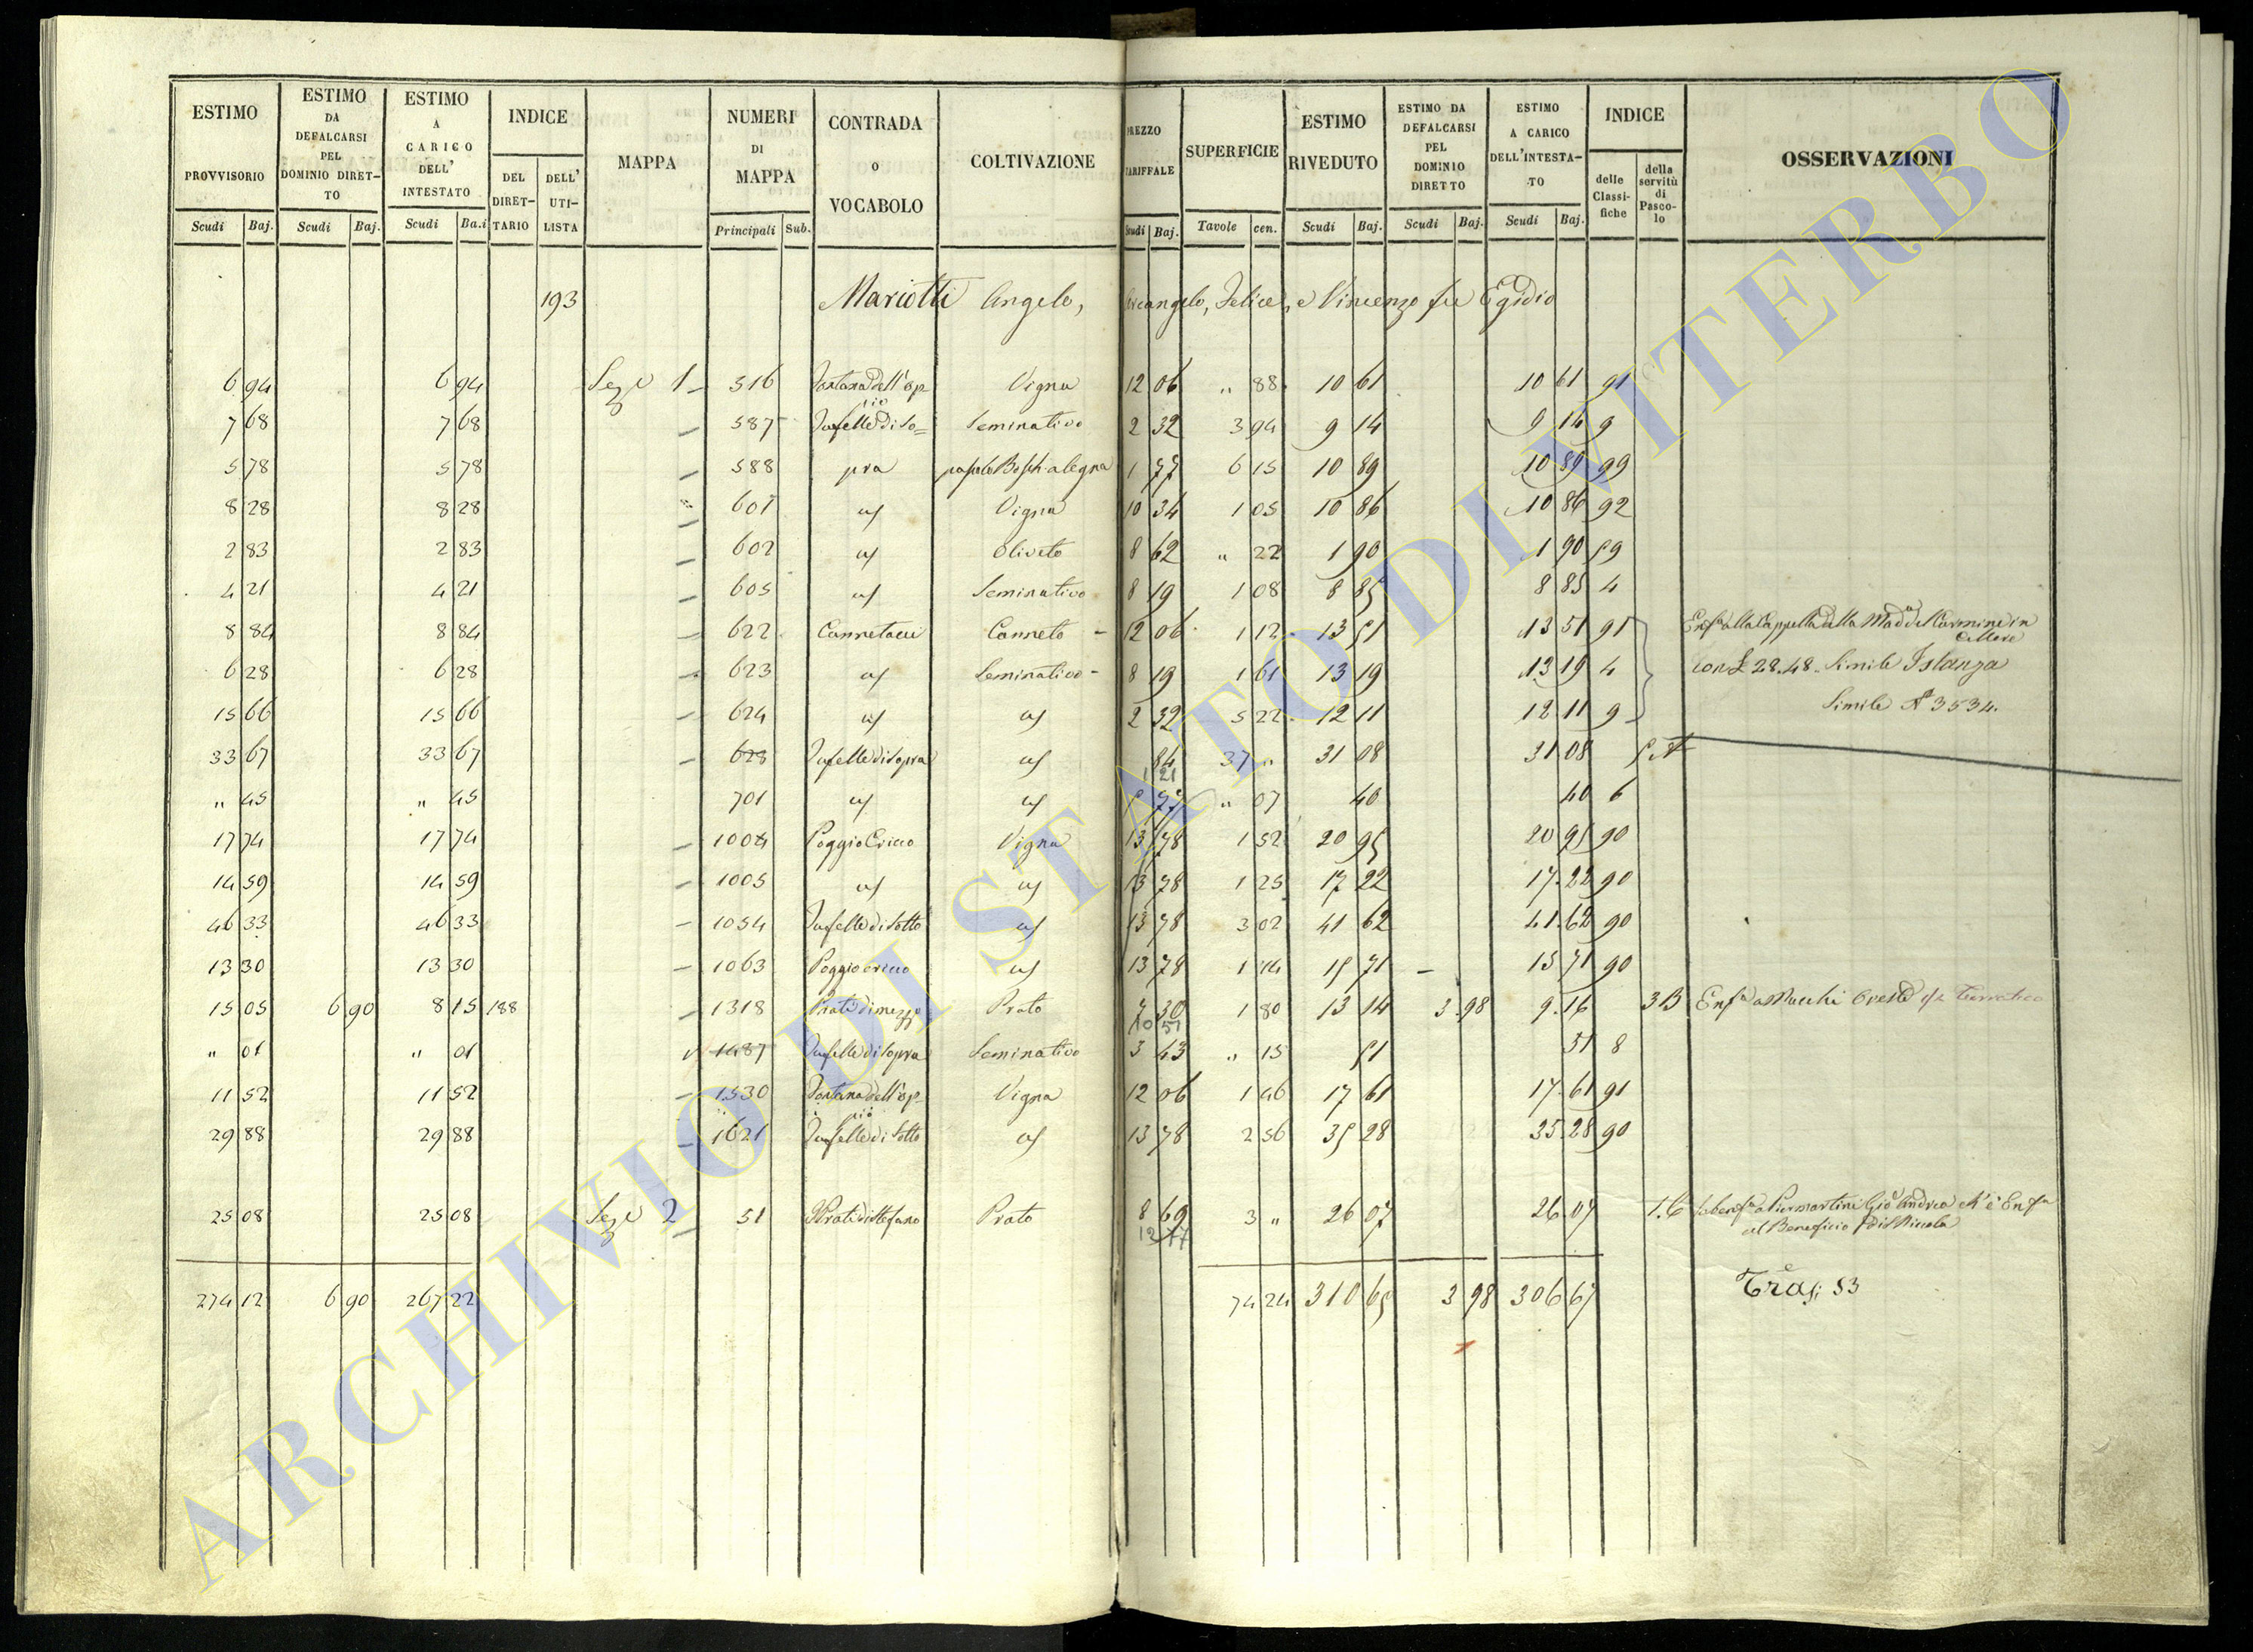 ESTIMO PROVVISORIO Scudi Baj.
ESTIMO DA DEFALCARSI PEL DOMINIO DIRET-TO Scudi Baj.
ESTIMO A CARICO DELL' INTESTATO Scudi Ba.i
INDICE DEL DIRET-TARIO DELL' UTI-LISTA
MAPPA
NUMERI DI MAPPA Principali Sub.
CONTRADA o VOCABOLO
COLTIVAZIONE
PREZZO TARIFFALE Scudi Baj.
SUPERFICIE Tavole cen.
ESTIMO RIVEDUTO Scudi Baj.
ESTIMO DA DEFALCARSI PEL DOMINIO DIRETTO Scudi Baj.
ESTIMO A CARICO DELL'INTESTA-TO Scudi Baj.
INDICE delle Classi-fiche della servitù di Pasco-lo
OSSERVAZIONI
193 Mariotti Angelo, Arcangelo, Felice, e Vincenzo fu Egidio
6 94 6 94 Sez e 1 516 Fontana dell' Vigna 12 06 " 88 10 61 10 61 91
7 68 7 68 587 di So= Seminativo 2 32 3 94 9 14 9 14 9
5 78 5 78 588 pra 1 77 6 15 10 89 10 89 99
8 28 8 28 601 Vigna 10 34 1 05 10 86 10 86 92
2 83 2 83 602 Oliveto 8 62 " 22 1 90 1 90 59
4 21 4 21 605 Seminativo 8 19 1 08 8 85 8 85 4
8 84 8 84 622 Cannetacci Canneto 12 06 1 12 13 51 13 51 91 alla Cappella della Mad a del Carmine in Cellere
6 28 6 28 623 Seminativo 8 19 1 61 13 19 13 19 4 con 28.48. Simile Istanza
15 66 15 66 624 2 32 5 22 12 11 12 11 9 Simile 3534.
33 67 33 67 628 di sopra 84 37 " 31 08 31 08 5
1 21
" 45 " 45 701 5 77 " 07 40 40 6
17 74 17 74 1004 Poggio Vigna 13 78 1 52 20 95 20 95 90
14 59 14 59 1005 13 78 1 25 17 22 17.22 90
46 33 46 33 1054 di sotto 13 78 3 02 41 62 41.62 90
13 30 13 30 1063 Poggio 13 78 1 14 15 71 15 71 90
15 05 6 90 8 15 188 1318 Prati di mezzo Prato 7 30 1 80 13 14 3.98 9.16 3 B
10 51
" 01 " 01 1487 di sopra Seminativo 3 43 " 15 51 51 8
11 52 11 52 1530 Fontana dell' Vigna 12 06 1 46 17 61 17.61 91
29 88 29 88 1621 di Sotto 13 78 2 56 35 28 35.28 90
25 08 25 08 Sez e 2 51 Prati di Stefano Prato 8 69 3 " 26 07 26.07 1.C Piermartini Gio Andrea
12 77 al Beneficio di S Niccola
274 12 6 90 267 22 74 24 310 65 3 98 306 67 53
ARCHIVIO DI STATO DI VITERBO